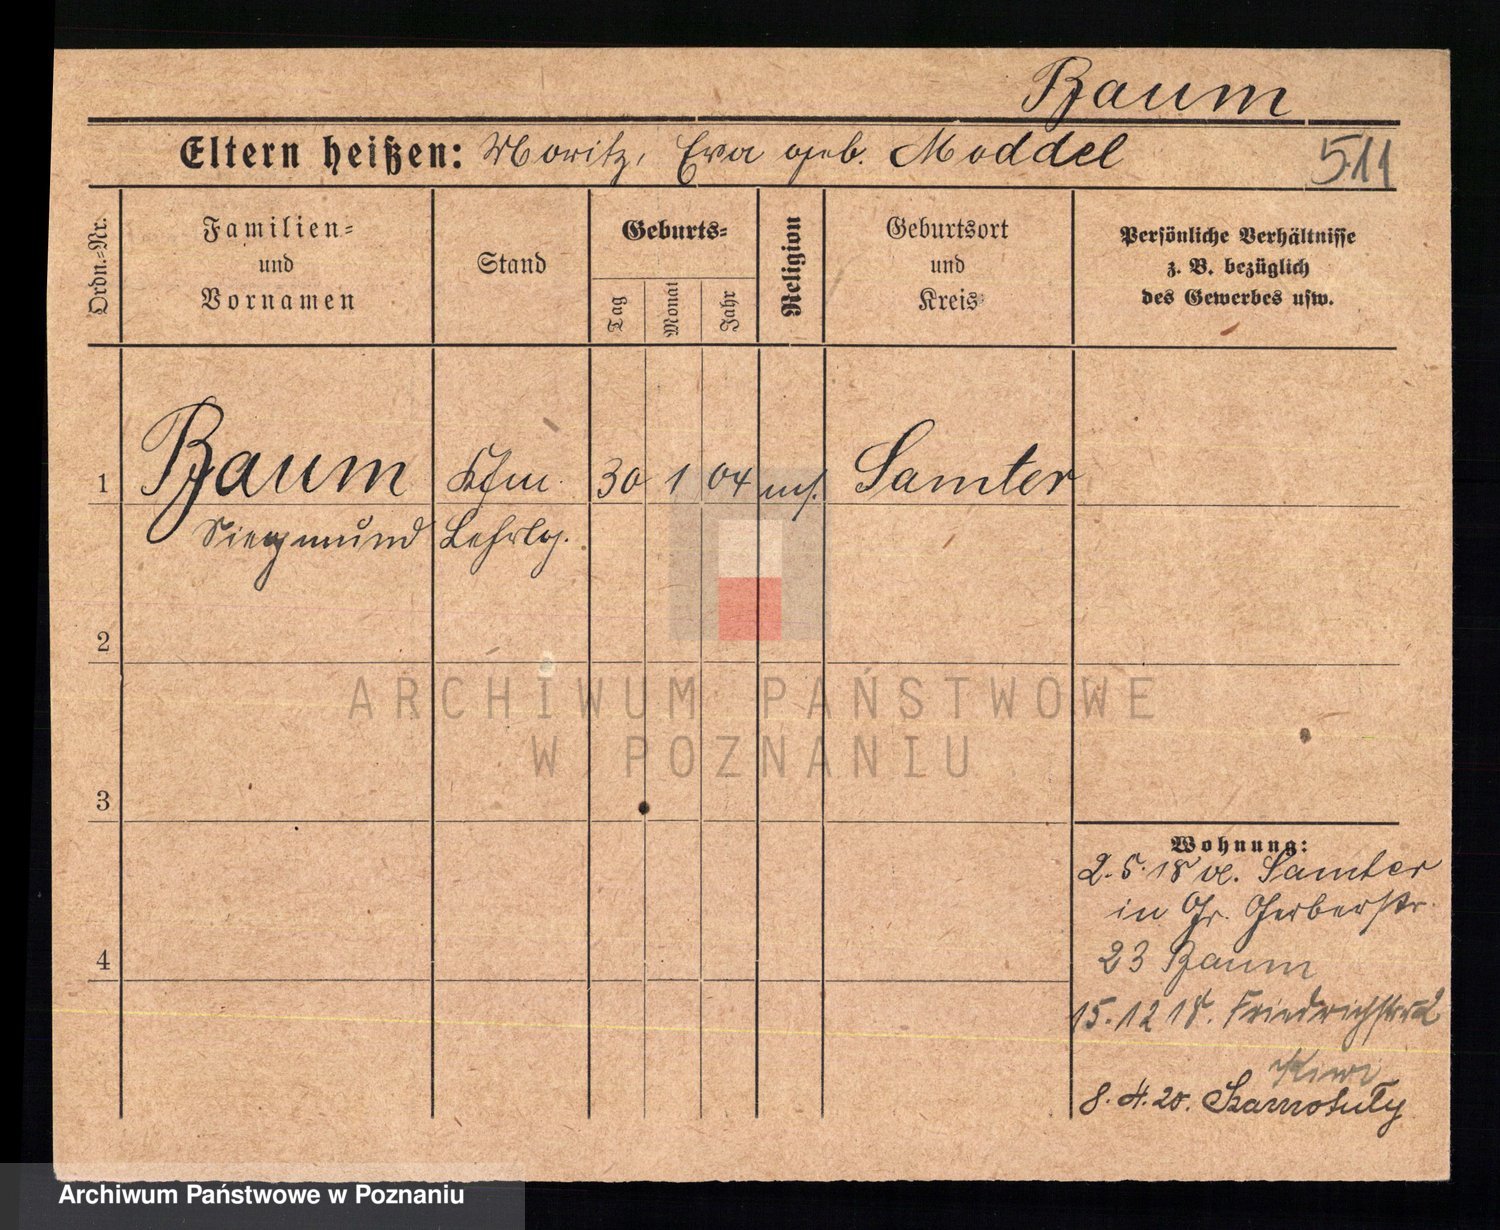 Baum
Eltern heißen: Moritz, Eva geb. Moddel
511
Ordn.-Nr.
Familien-
und
Vornamen
Stand
Geburts-
Tag
Monat
Jahr
Religion
Geburtsort
und
Kreis
Persönliche Verhältnisse
z. B. bezüglich
des Gewerbes usw.
1 Baum Kfm. 30 1 04 mos. Samter
Siegmund Lehrlg.
2
3
4
Wohnung:
2.5.18 v. Samter
in Gr. Gerberstr.
23 Baum
15.12 18. Friedrichstr.
8.4.20. Szamotuły
ARCHIWUM PAŃSTWOWE
W POZNANIU
Archiwum Państwowe w Poznaniu